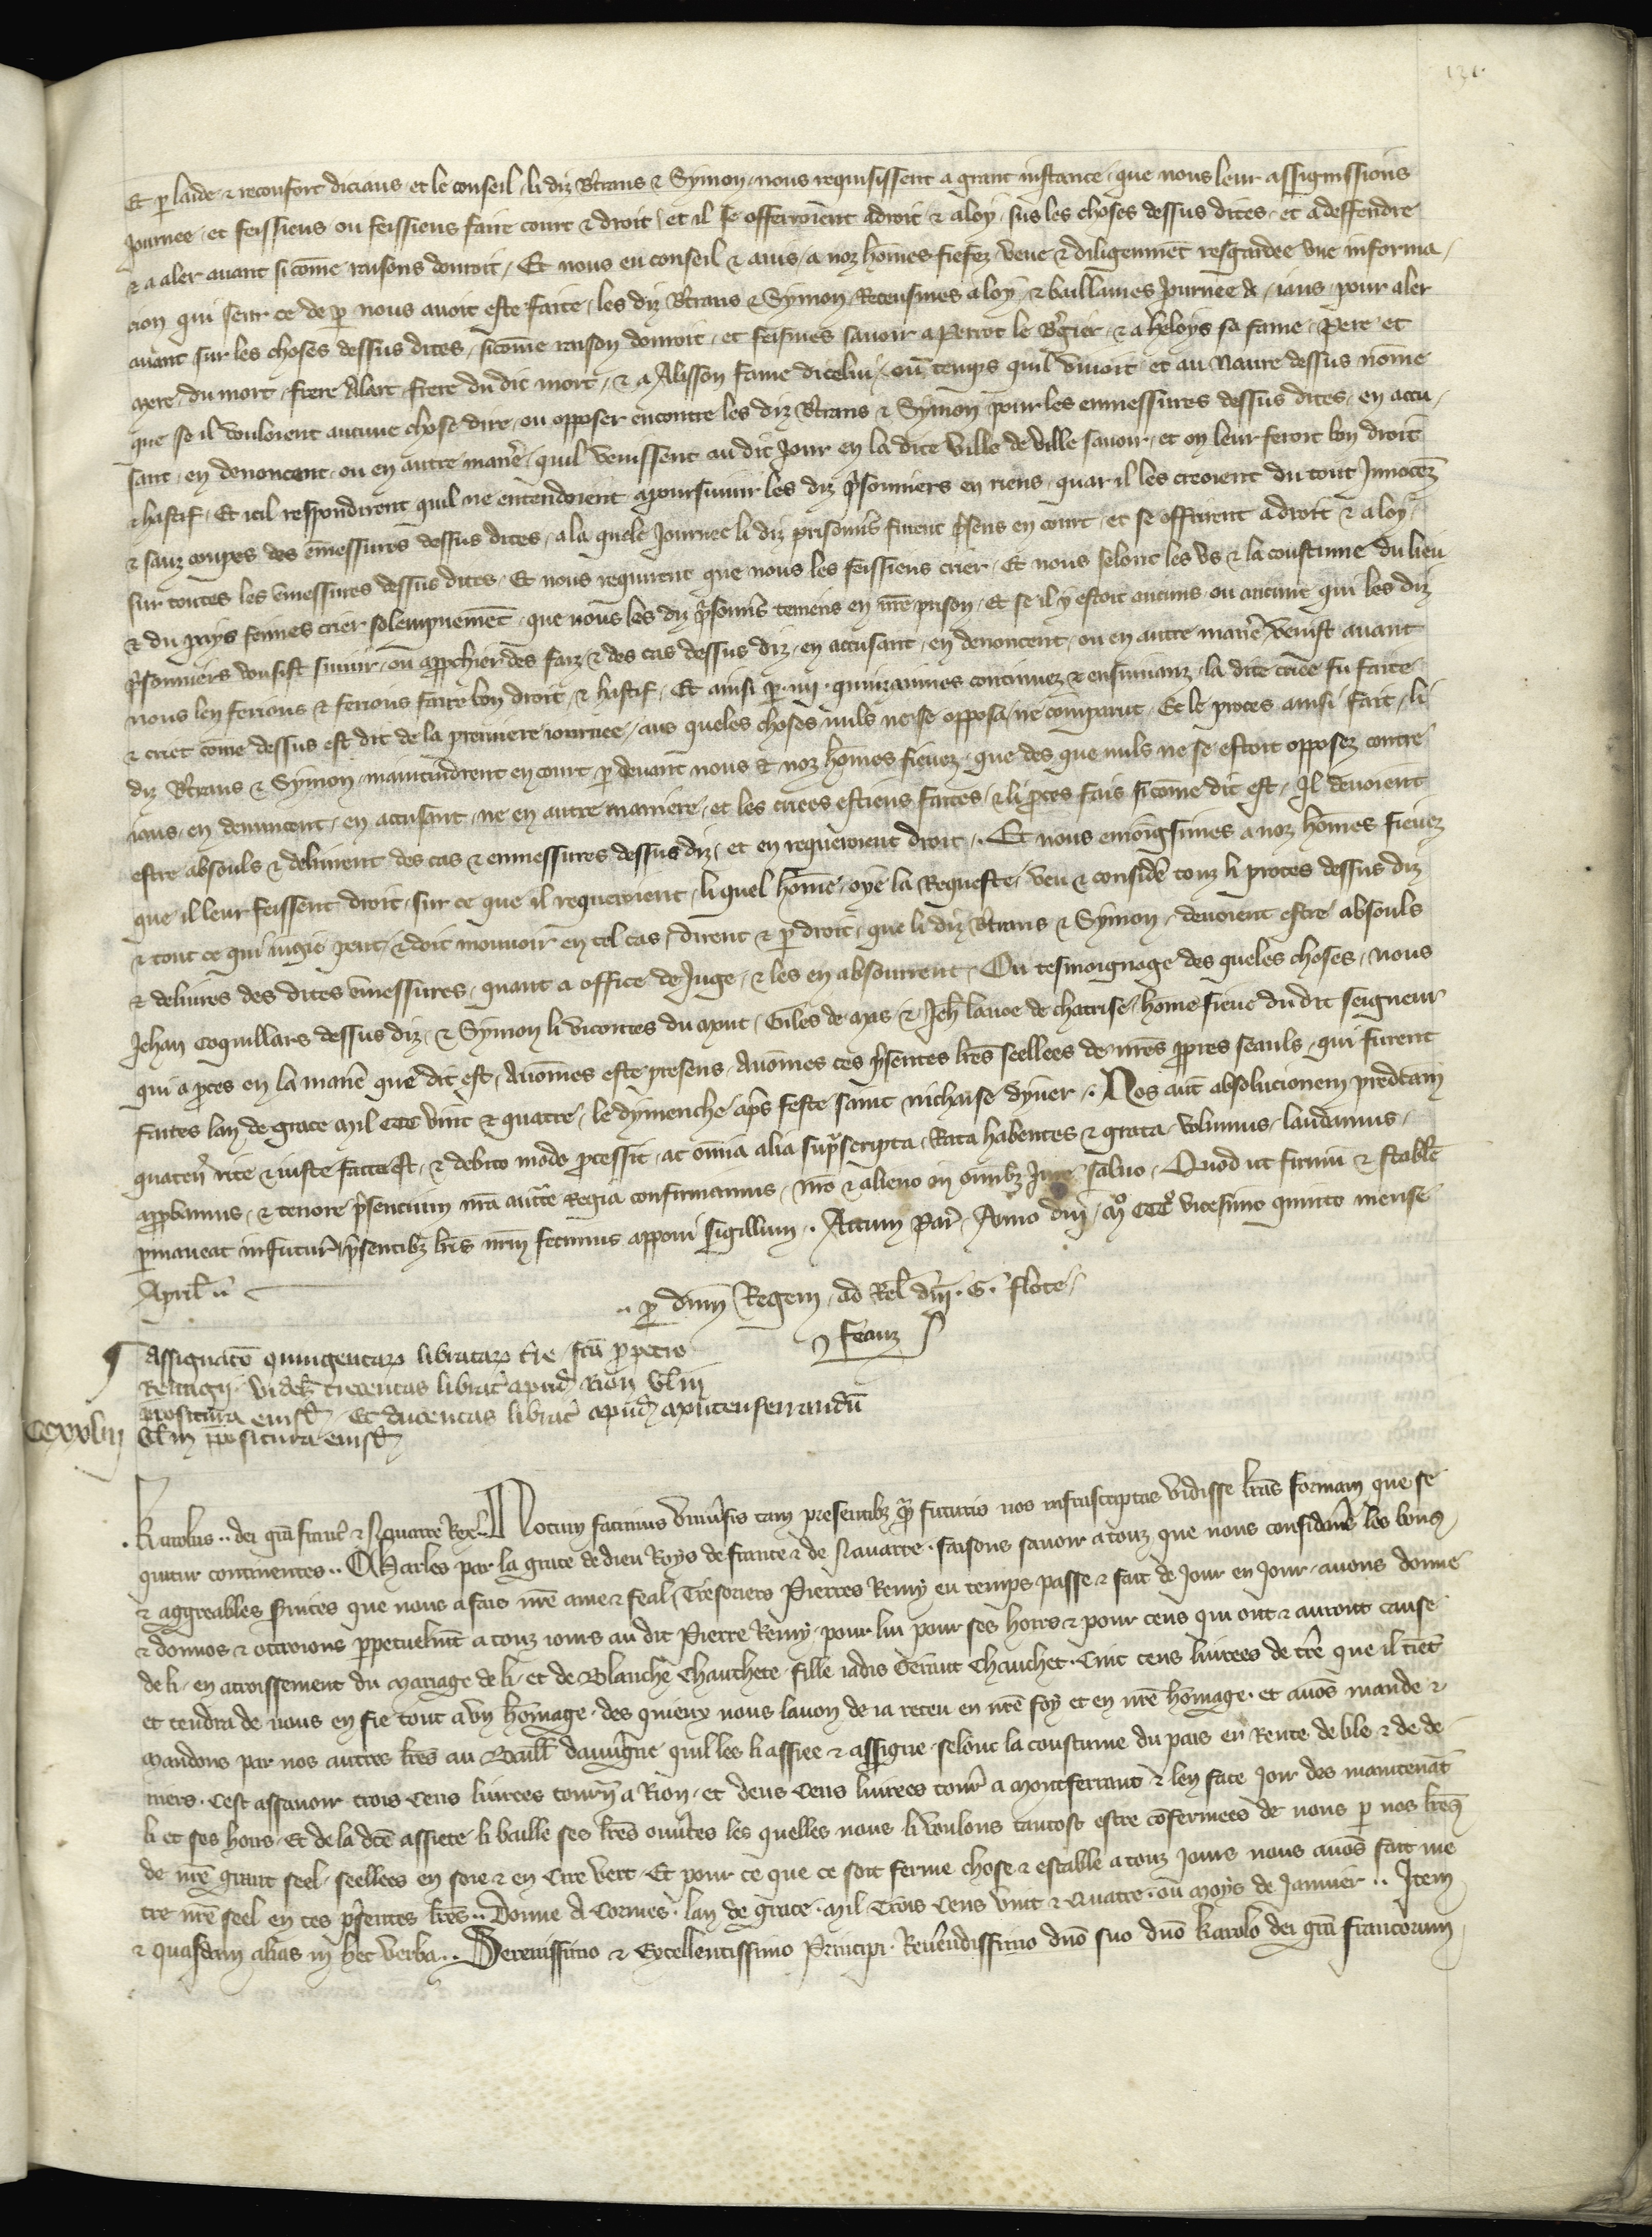 131.
Et p laide & reconfort diciaus et le conseil li diz Btrans & Symon nous requisissent a grant instance que nous leur assignissions
Journee et feissiens ou feissiens faire court & droit et il se offerroient a droit & a loy sus les choses dessus dites et a deffendre
& a aler auant si cõme raisons donroit Et nous eu conseil & auis a noz hõmes fiefez veue & diligenmẽt resgardee vne informa
cion qui seur ce de p nous auoit este faite les diz Btrans & Symon Receusmes a loy & baillames Journee A ians pour aler
auant sur les choses dessus dites sicõme raison donroit et feismes sauoir a Perrot le Bgier & a heloys sa fame Pere et
Mere du mort frere Alart frere du dit mort & a Alisson fame dicelui ou temps quil viuoit et au Naure dessus nõme
que se il vouloient aucune chose dire ou opposer encontre les diz Btrans & Symon pour les enmessures dessus dites en accu
sant en denoncent ou en autre manẽ quil venissent au dit Jour en la dite ville de ville sauoir et on leur feroit bon droit
& hastif Et icil respondirent quil ne entendoient a poursuiuir les diz psonniers en riens quar il les creoient du tout Innocẽz
& sanz coupes des emessures dessus dites a la quele Journee li diz prisonns furent psens en court et se offrirent a droit & a loy
sur toutes les emessures dessus dites Et nous requirent que nous les feissiens crier Et nous selonc les vs & la coustume du lieu
& du pays feimes crier solempnemẽt que nous les diz psonns teniens en nre prison Et se il y estoit aucuns ou aucune qui les diz
psonniers vousist suiuir ou approchier des faiz & des cas dessus diz en accusant en denoncent ou en autre manẽ venist auant
nous len ferions & ferions faire bon droit & hastif Et ainsi p iiij quinzainnes continuez & ensuiuanz la dite criee fu faite
& criet cõme dessus est dit de la premiere iournee aus queles choses nuls ne se opposa ne comparut Et le proces ainsi fait li
diz Btrans & Symon maintindrent en court p deuant nous & noz hõmes fieuez que des que nuls ne se estoit opposez contre
iaus en denuncent en accusant ne en autre maniere et les criees estiens faites & li proces fais si cõme dit est Il deuoient
estre absouls & deliurent des cas & enmessures dessus diz et en requeroient droit Et nous enioigsimes a noz hõmes fieuez
que il leur feissent droit sur ce que il requeroient li quel hõme oye la Requeste veu & considẽ touz li proces dessus diz
& tout ce qui iugie peut & doit mouuoir en tel cas dirent & p droit que li diz Btrans & Symon deuoient estre absouls
& deliures des dites emessures quant a office de Juge & les en absourrent Ou tesmoignage des queles choses nous
Jehan Coquillars dessus diz & Symon li vicontes du Mont Giles de Mas & Jeh lauoe de chatrise hõme fieue du dit seigneur
qui a pces en la manẽ que dit est Auõmes este presens Auõmes ces psentes lres seellees de nres ppres seauls qui furent
faites lan de grace Mil CCC vint & quatre le dymenche aps feste saint nichaise dyuer Nos aut absolucionem predcam
quaten rite & iuste facta est & debito modo pcessit ac omnia alia supscripta Rata habentes & grata volumus laudamus
appbamus & tenore psentium nra auctte Regia confirmamus nro & alieno in omibz Jure saluo Quod ut firmu & stabile
pmaneat in futur psentibz lris nrm fecimus apponi sigillum Actum Par Anno dni Mº CCCº vicesimo quinto mense
April
p dnm Regem ad Rel dni G flote
feauz
Assignacõ quingentar libratar tre fca p petro
Remigii videlz trecentas librat apud Rion vl in
prepositura eiusd Et ducentas librat apud montenferrandũ
CCxxvlııj
vl in ppositura eiusd
Karolus dei gra franc & Nauarre Rex Notum facimus vniusis tam presentibz qm futuris nos infrascriptas vidisse lras formam que se
quitur continentes Charles par la grace de dieu Roys de france & de Nauarre faisons sauoir a touz que nous considere les bons
& aggreables seruices que nous a fais nre ame & feal Tresoriers Pierres Remy en temps passe & fait de Jour en Jour auons donne
& donnos & ottroions ppetuelmt a touz iours au dit Pierre Remy pour lui pour ses hoirs & pour ceus qui ont & auront cause
de li en acroissement du mariage de li et de Blanche Chauchete fille iadis Geraut Chauchet Cinc cens liurees de tre que il tiet
et tendra de nous en fie tout a vn hõmage des quieux nous lauon de ia receu en nre foy et en nre hõmage et auõs mande &
Mandons par nos autres lres au Baill dauuigne quil les li assiee & assigne selonc la coustume du pais en Rente de ble & de de
niers Cest assauoir trois Cens liurees tourn a Rion et deus Cens liurees tour a montferrant & len face Joir des maintenãt
li et ses hoirs Et de la dce assiete li baille ses lres ouutes les quelles nous li voulons tantost estre cõfermees de nous p nos lres
de nre grant seel seellees en soie & en Cire vert Et pour ce que ce soit ferme chose & estable a touz Jours nous auõs fait me
tre nre seel en ces psentes lres Donne A Cormes lan de grace Mil Trois Cens vint & Quatre ou Moys de Januier Item
& quasdam alias in hec verba Serenissimo & Excellentissimo Principi Reuendissimo dno suo dno Karolo dei gra francorum